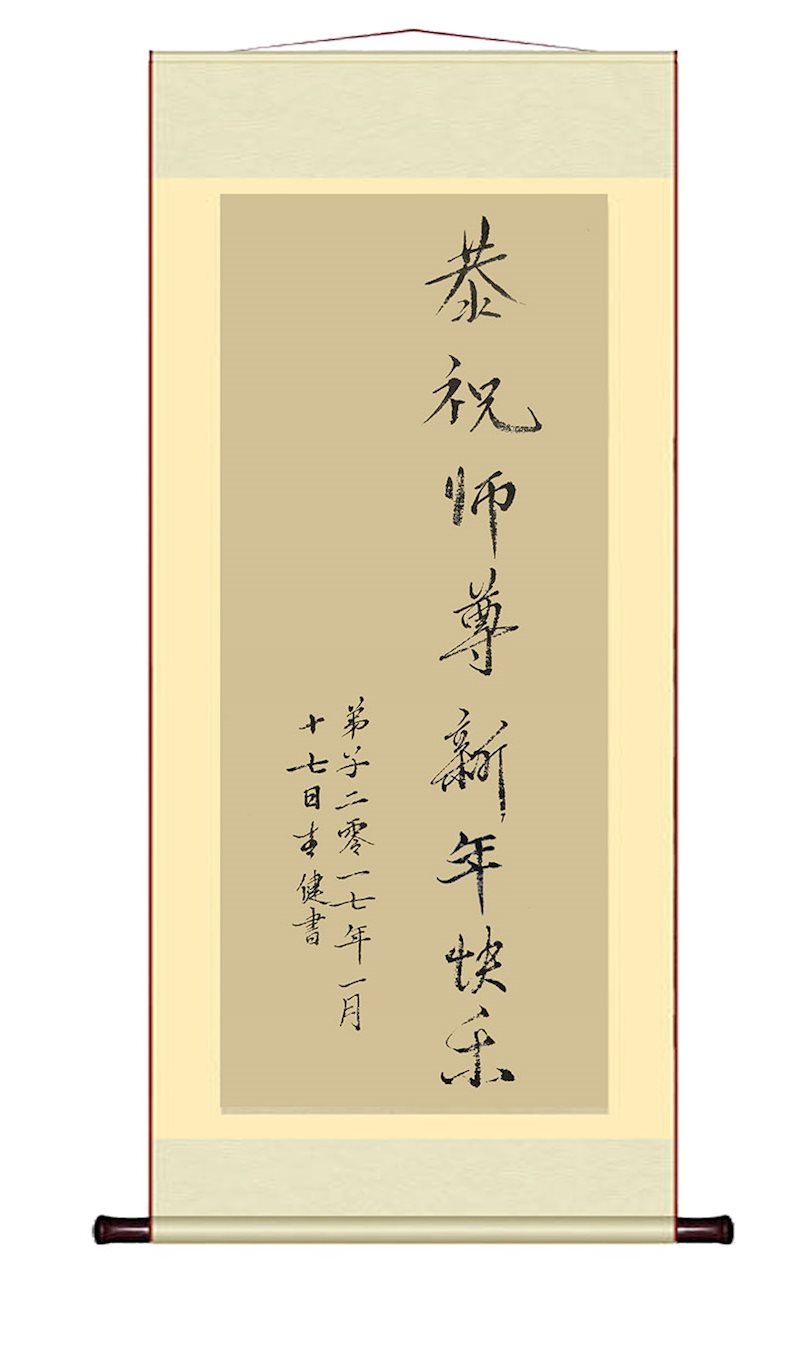 恭祝师尊新年快乐
弟子二零一七年一月
十七日志健書